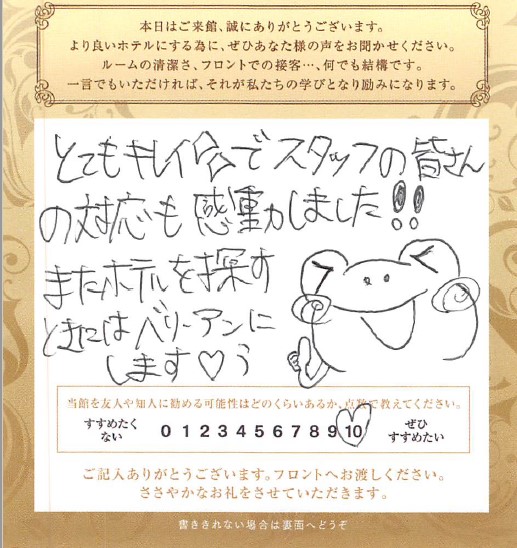 本日はご来館、誠にありがとうございます。
より良いホテルにする為に、ぜひあなた様の声をお聞かせください。
ルームの清潔さ、フロントでの接客…、何でも結構です。
一言でもいただければ、それが私たちの学びとなり励みになります。
とてもキレイでスタッフの皆さん
の対応も感動しました!!
またホテルを探す
ときにはベリーアンに
します♡
当館を友人や知人に勧める可能性はどのくらいあるか、点数で教えてください。
すすめたく
ない
0 1 2 3 4 5 6 7 8 9 10
ぜひ
すすめたい
ご記入ありがとうございます。フロントへお渡しください。
ささやかなお礼をさせていただきます。
書ききれない場合は裏面へどうぞ